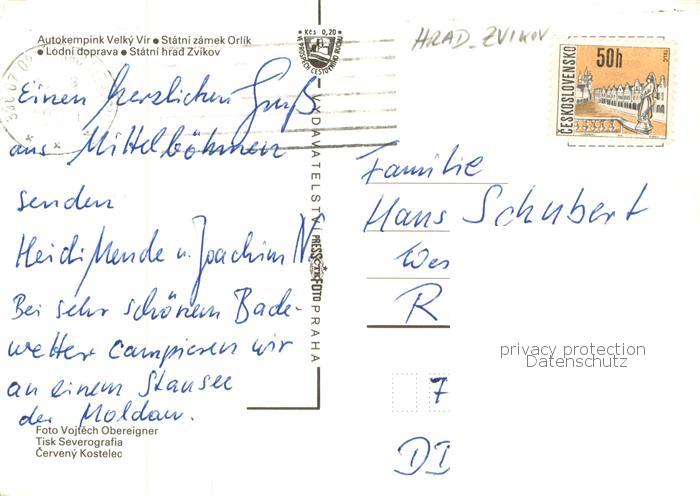 Autokempink Velký Vír ● Státní zámek Orlík
● Lodní doprava ● Státní hrad Zvíkov
Kčs 0,20
VE PROSPĚCH CESTOVNÍHO RUCHU
HRAD ZVIKOV
ČESKOSLOVENSKO
50h
TELČ
Einen herzlichen Gruß
aus Mittelböhmen
senden
Heidi, Mende u. Joachim N.
Bei sehr schönem Bade-
wetter campieren wir
an einem Stausee
der Moldau.
VYDAVATELSTVÍ PRESSFOTO PRAHA
Familie
Hans Schubert
Wes
R
7
DD
privacy protection
Datenschutz
Foto Vojtěch Obereigner
Tisk Severografia
Červený Kostelec